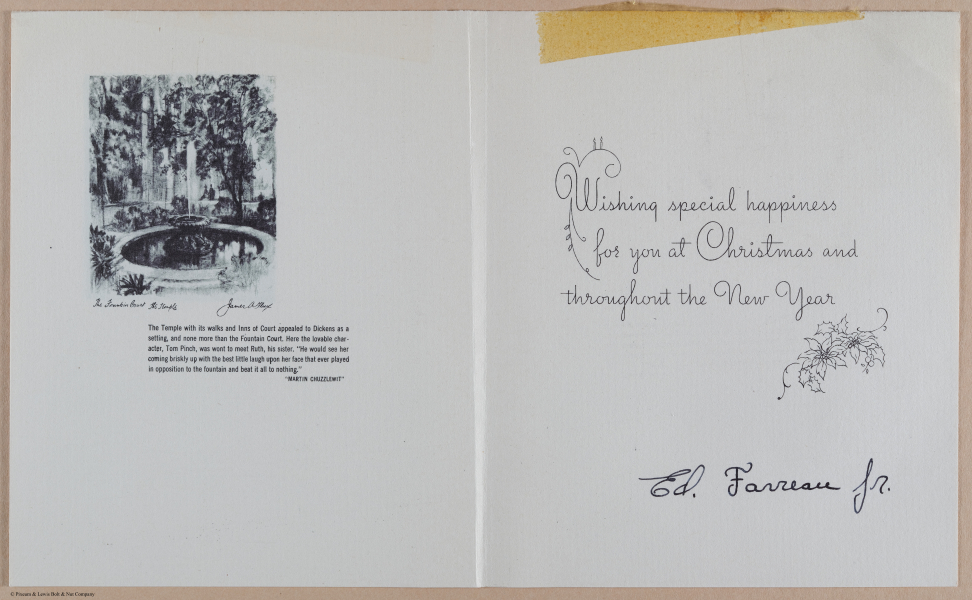 The Fountain Court The Temple
The Temple with its walks and Inns of Court appealed to Dickens as a
setting, and none more than the Fountain Court. Here the lovable char-
acter, Tom Pinch, was wont to meet Ruth, his sister. "He would see her
coming briskly up with the best little laugh upon her face that ever played
in opposition to the fountain and beat it all to nothing."
"MARTIN CHUZZLEWIT"
Wishing special happiness
for you at Christmas and
throughout the New Year
Ed. Favreau Jr.